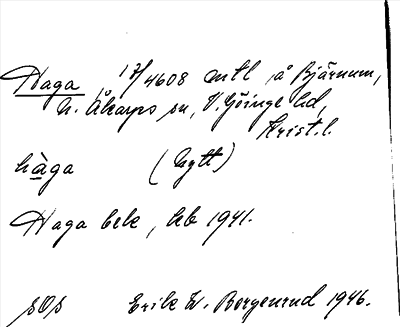 Haga, 17/4608 mtl å Bjärnum,
N. Åkarps sn, V. Göinge hd,
Krist. l.
hàga (nytt)
Haga bek, leb 1941.
Erik W. Borgenrud 1946.